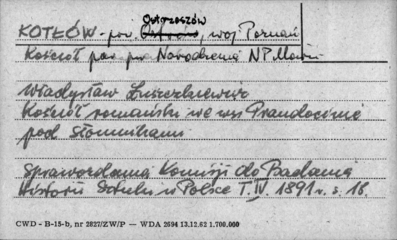 Ostrzeszów
KOTŁÓW - pow. Ostrów, woj Poznań
Kościół par. pw Narodzenia NP Marii
Władysław Łuszczkiewicz
Kościół romański we wsi Prandocinie
pod Słomnikami
Sprawozdania Komisji do Badania
Historii Sztuki w Polsce T. IV. 1891 r. s. 16.
CWD - B-15-b, nr 2827/ZW/P — WDA 2694 13.12.62 1.700.000